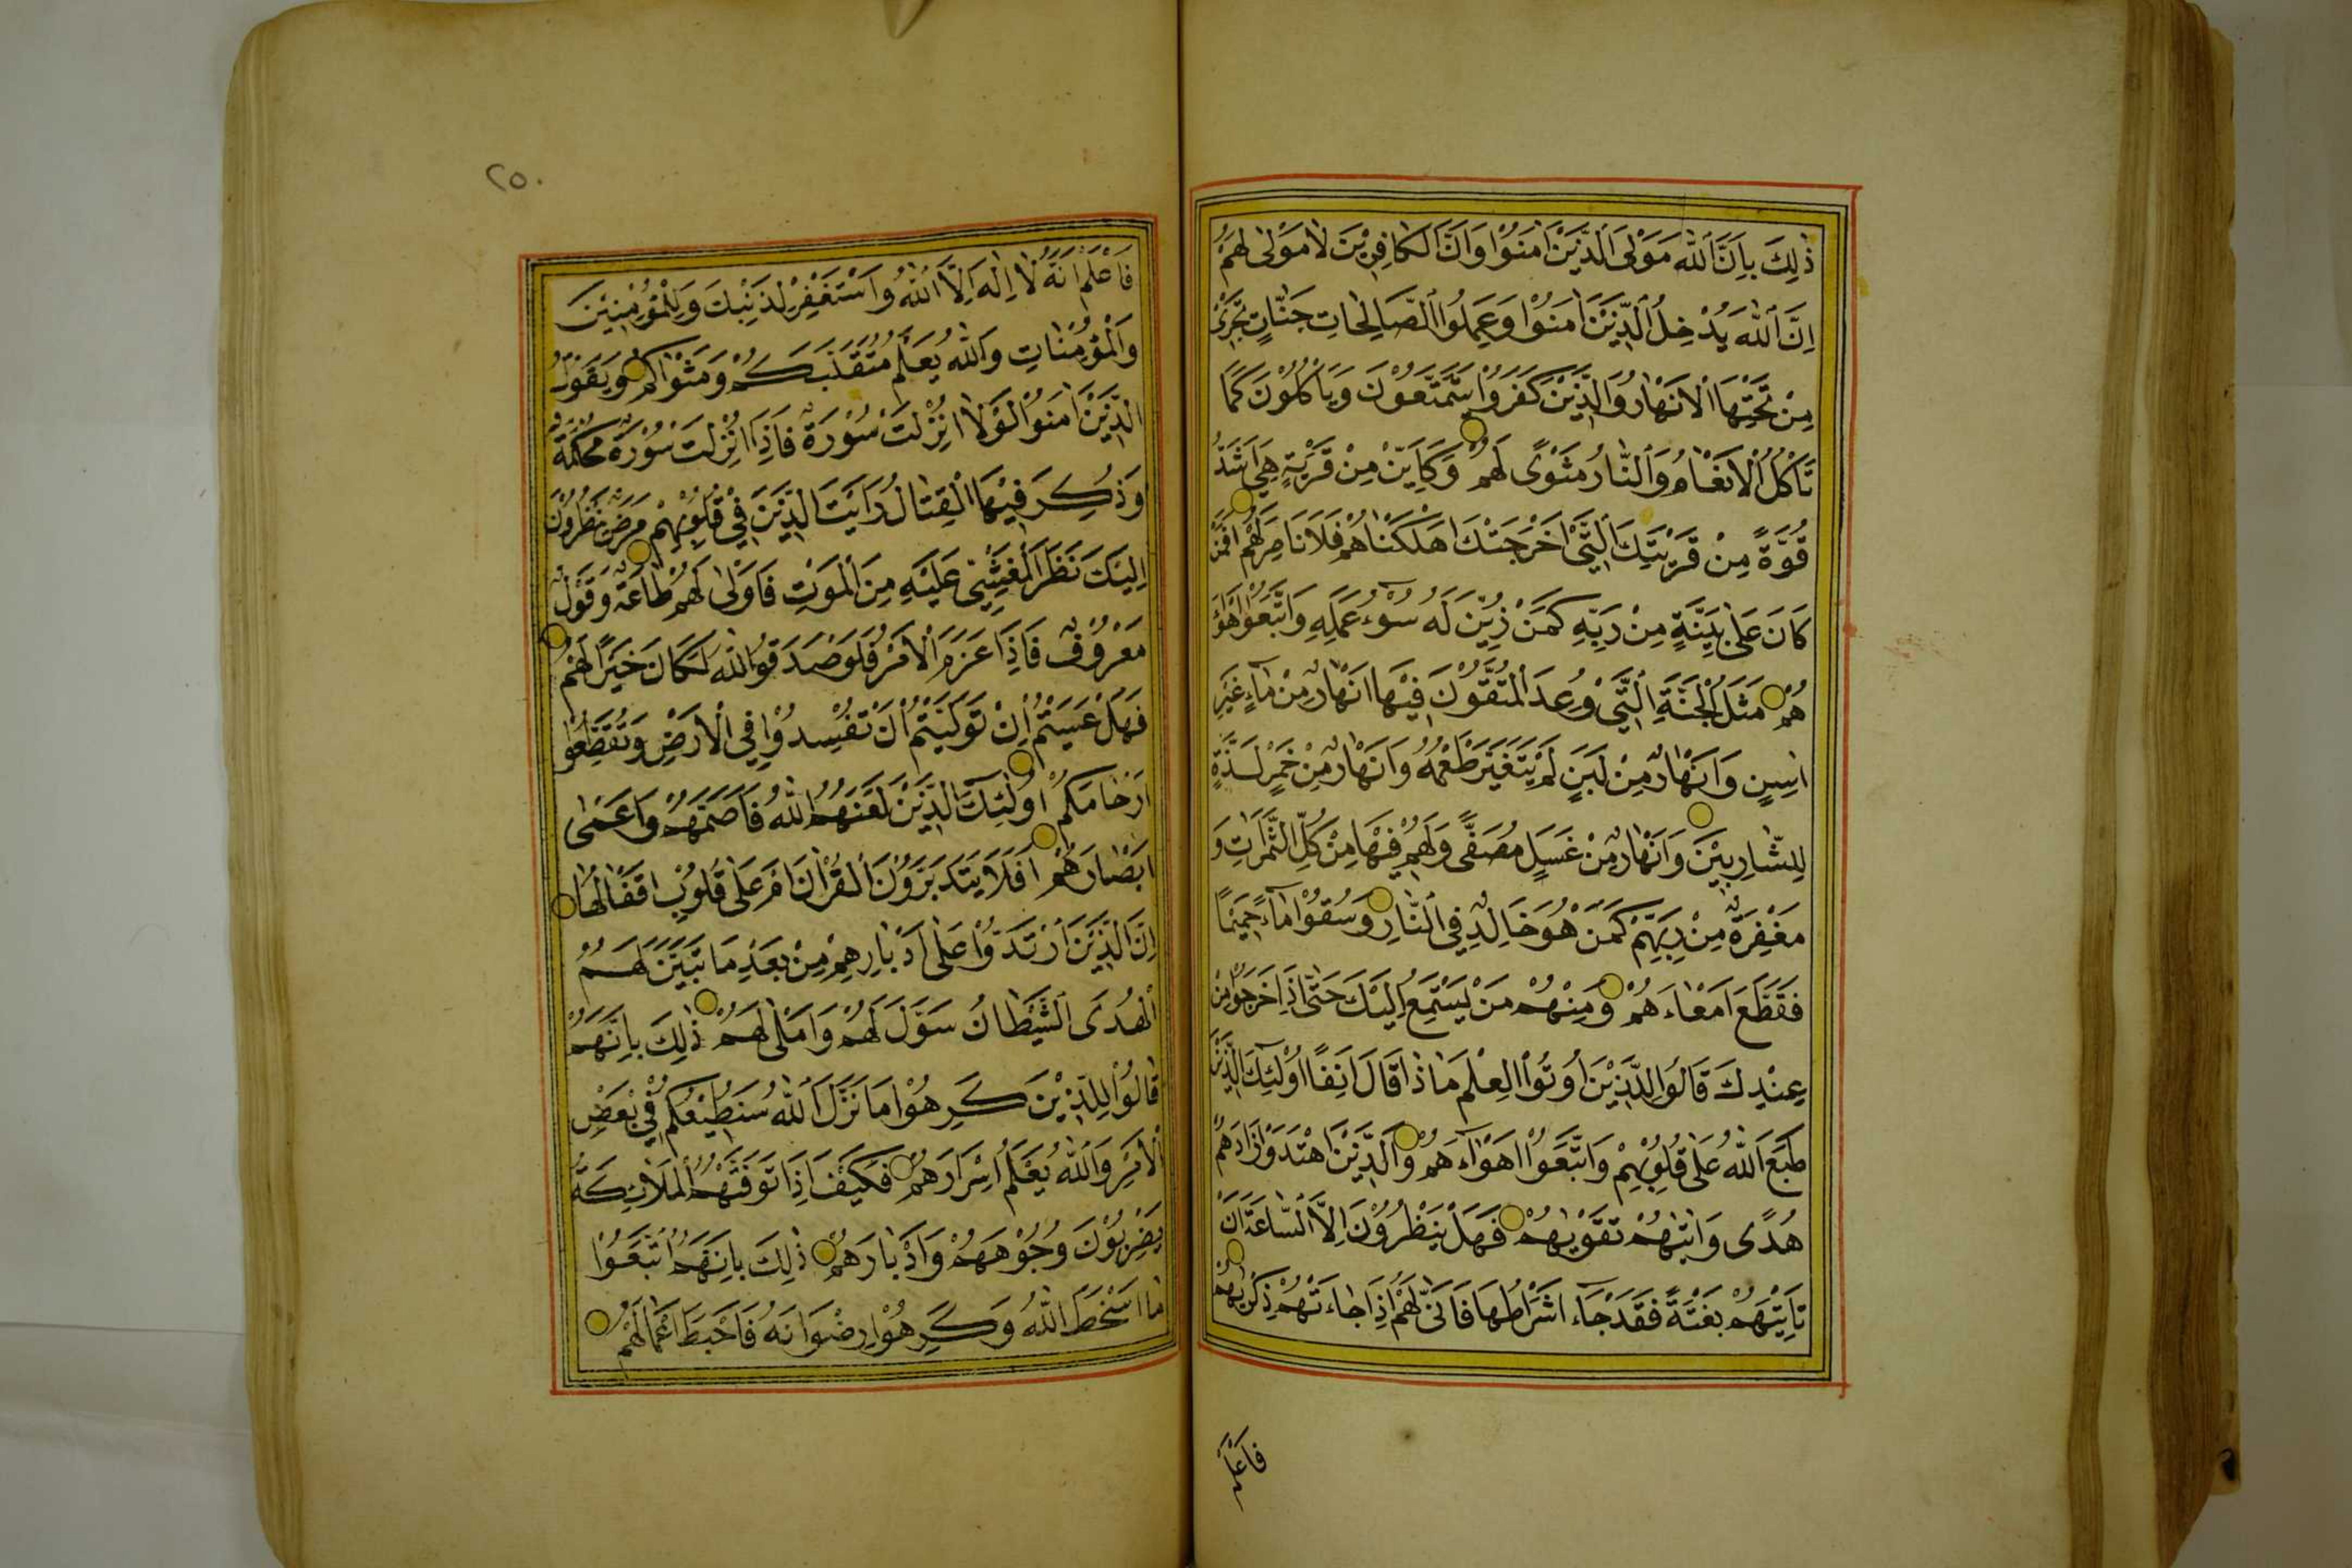 ذٰلِكَ بِاَنَّ اللّٰهَ مَوْلَى الَّذِيْنَ اٰمَنُوْا وَاَنَّ الْكَافِرِيْنَ لَا مَوْلٰى لَهُمْ
اِنَّ اللّٰهَ يُدْخِلُ الَّذِيْنَ اٰمَنُوْا وَعَمِلُوا الصَّالِحَاتِ جَنَّاتٍ تَجْرِيْ
مِنْ تَحْتِهَا الْاَنْهَارُ وَالَّذِيْنَ كَفَرُوْا يَتَمَتَّعُوْنَ وَيَأْكُلُوْنَ كَمَا
تَأْكُلُ الْاَنْعَامُ وَالنَّارُ مَثْوًى لَهُمْ وَكَاَيِّنْ مِنْ قَرْيَةٍ هِيَ اَشَدُّ
قُوَّةً مِنْ قَرْيَتِكَ الَّتِيْ اَخْرَجَتْكَ اَهْلَكْنَاهُمْ فَلَا نَاصِرَ لَهُمْ اَفَمَنْ
كَانَ عَلٰى بَيِّنَةٍ مِنْ رَبِّهِ كَمَنْ زُيِّنَ لَهُ سُوْءُ عَمَلِهِ وَاتَّبَعُوْا اَهْوَآءَ
هُمْ مَثَلُ الْجَنَّةِ الَّتِيْ وُعِدَ الْمُتَّقُوْنَ فِيْهَا اَنْهَارٌ مِنْ مَآءٍ غَيْرِ
اٰسِنٍ وَاَنْهَارٌ مِنْ لَبَنٍ لَمْ يَتَغَيَّرْ طَعْمُهُ وَاَنْهَارٌ مِنْ خَمْرٍ لَذَّةٍ
لِلشَّارِبِيْنَ وَاَنْهَارٌ مِنْ عَسَلٍ مُصَفًّى وَلَهُمْ فِيْهَا مِنْ كُلِّ الثَّمَرَاتِ وَ
مَغْفِرَةٌ مِنْ رَبِّهِمْ كَمَنْ هُوَ خَالِدٌ فِي النَّارِ وَسُقُوْا مَآءً حَمِيْمًا
فَقَطَّعَ اَمْعَاءَهُمْ وَمِنْهُمْ مَنْ يَسْتَمِعُ اِلَيْكَ حَتّٰى اِذَا خَرَجُوْا مِنْ
عِنْدِكَ قَالُوْا لِلَّذِيْنَ اُوْتُوا الْعِلْمَ مَاذَا قَالَ اٰنِفًا اُولٰئِكَ الَّذِيْنَ
طَبَعَ اللّٰهُ عَلٰى قُلُوْبِهِمْ وَاتَّبَعُوْا اَهْوَآءَهُمْ وَالَّذِيْنَ اهْتَدَوْا زَادَهُمْ
هُدًى وَاٰتٰيهُمْ تَقْوٰيهُمْ فَهَلْ يَنْظُرُوْنَ اِلَّا السَّاعَةَ اَنْ
تَأْتِيَهُمْ بَغْتَةً فَقَدْ جَآءَ اَشْرَاطُهَا فَاَنّٰى لَهُمْ اِذَا جَاءَتْهُمْ ذِكْرٰيهُمْ
فَاعْلَمْ
٢٥٠
فَاعْلَمْ اَنَّهُ لَا اِلٰهَ اِلَّا اللّٰهُ وَاسْتَغْفِرْ لِذَنْبِكَ وَلِلْمُؤْمِنِيْنَ
وَالْمُؤْمِنَاتِ وَاللّٰهُ يَعْلَمُ مُتَقَلَّبَكُمْ وَمَثْوٰكُمْ وَيَقُوْلُ
الَّذِيْنَ اٰمَنُوْا لَوْلَا نُزِّلَتْ سُوْرَةٌ فَاِذَا اُنْزِلَتْ سُوْرَةٌ مُحْكَمَةٌ
وَذُكِرَ فِيْهَا الْقِتَالُ رَاَيْتَ الَّذِيْنَ فِيْ قُلُوْبِهِمْ مَرَضٌ يَنْظُرُوْنَ
اِلَيْكَ نَظَرَ الْمَغْشِيِّ عَلَيْهِ مِنَ الْمَوْتِ فَاَوْلٰى لَهُمْ طَاعَةٌ وَقَوْلٌ
مَعْرُوْفٌ فَاِذَا عَزَمَ الْاَمْرُ فَلَوْ صَدَقُوا اللّٰهَ لَكَانَ خَيْرًا لَهُمْ
فَهَلْ عَسَيْتُمْ اِنْ تَوَلَّيْتُمْ اَنْ تُفْسِدُوْا فِي الْاَرْضِ وَتُقَطِّعُوْا
اَرْحَامَكُمْ اُولٰئِكَ الَّذِيْنَ لَعَنَهُمُ اللّٰهُ فَاَصَمَّهُمْ وَاَعْمٰى
اَبْصَارَهُمْ اَفَلَا يَتَدَبَّرُوْنَ الْقُرْاٰنَ اَمْ عَلٰى قُلُوْبٍ اَقْفَالُهَا
اِنَّ الَّذِيْنَ ارْتَدُّوْا عَلٰى اَدْبَارِهِمْ مِنْ بَعْدِ مَا تَبَيَّنَ لَهُمُ
الْهُدَى الشَّيْطَانُ سَوَّلَ لَهُمْ وَاَمْلٰى لَهُمْ ذٰلِكَ بِاَنَّهُمْ
قَالُوْا لِلَّذِيْنَ كَرِهُوْا مَا نَزَّلَ اللّٰهُ سَنُطِيْعُكُمْ فِيْ بَعْضِ
الْاَمْرِ وَاللّٰهُ يَعْلَمُ اِسْرَارَهُمْ فَكَيْفَ اِذَا تَوَفَّتْهُمُ الْمَلَائِكَةُ
يَضْرِبُوْنَ وُجُوْهَهُمْ وَاَدْبَارَهُمْ ذٰلِكَ بِاَنَّهُمُ اتَّبَعُوْا
مَا اَسْخَطَ اللّٰهَ وَكَرِهُوْا رِضْوَانَهُ فَاَحْبَطَ اَعْمَالَهُمْ